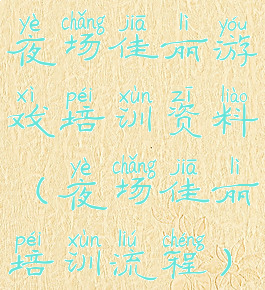 yè chǎng jiā lì yóu
夜场佳丽游
xì péi xùn zī liào
戏培训资料
yè chǎng jiā lì
（夜场佳丽
péi xùn liú chéng
培训流程）